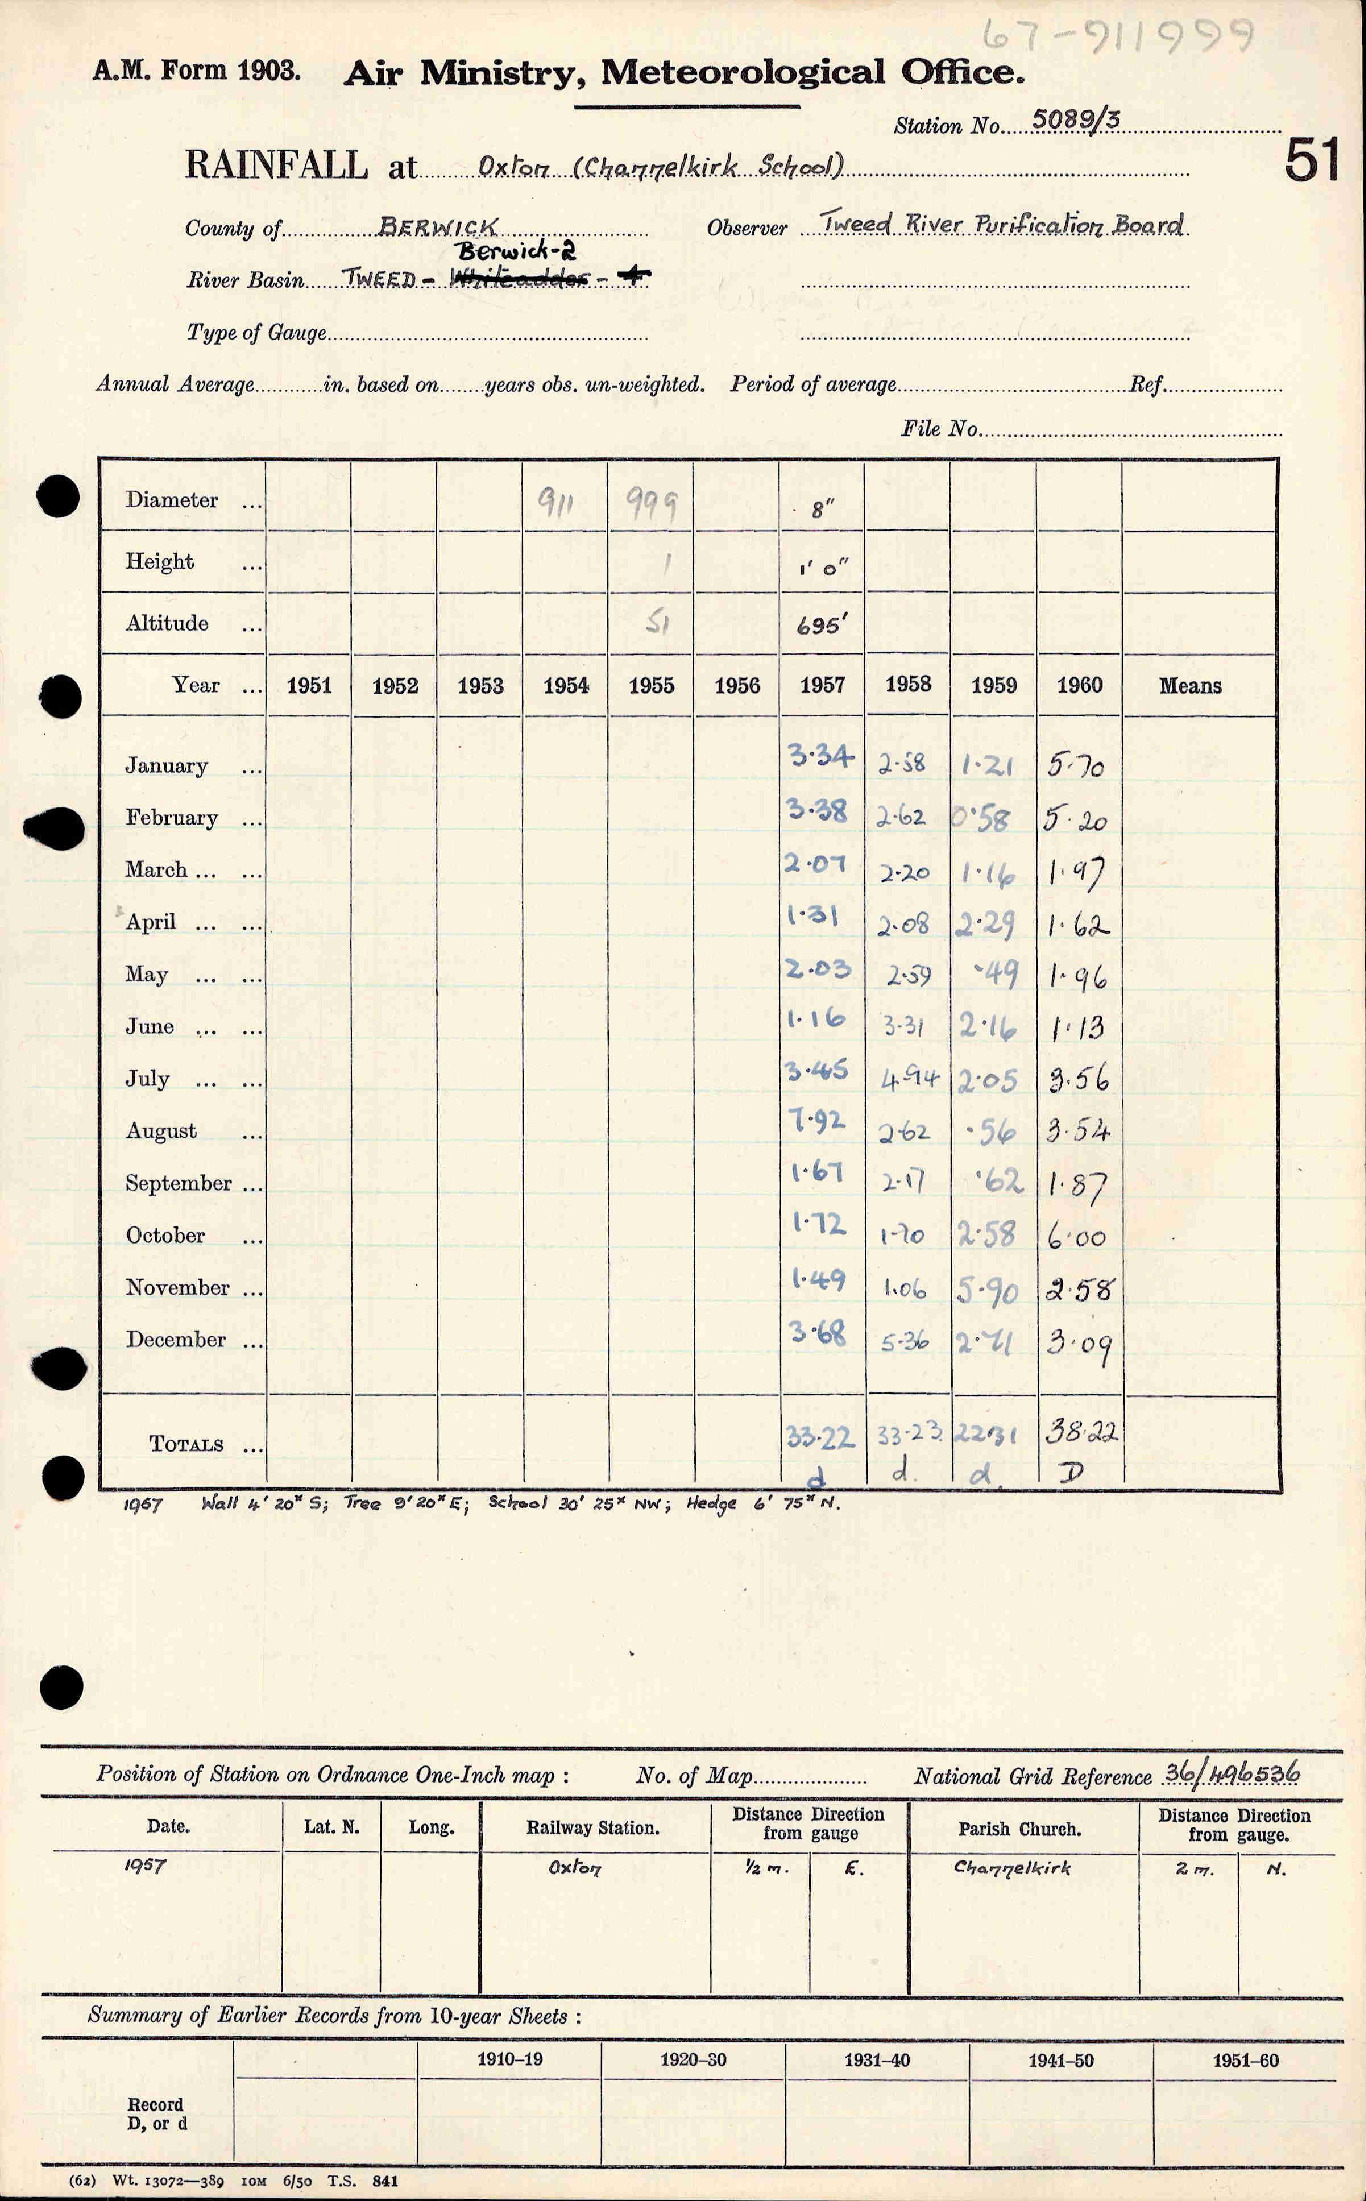 67-911999
A.M. Form 1903. Air Ministry, Meteorological Office.
Station No. 5089/3
51
RAINFALL at Oxton (Channelkirk School)
County of BERWICK Observer Tweed River Purification Board
Berwick-2
River Basin TWEED - Whiteadder - 4
Type of Gauge
Annual Average in. based on years obs. un-weighted. Period of average Ref.
File No.
Diameter ... 911 999 8"
Height ... 1 1' 0"
Altitude ... 51 695'
Year ... 1951 1952 1953 1954 1955 1956 1957 1958 1959 1960 Means
January ... 3.34 2.58 1.21 5.70
February ... 3.38 2.62 0.58 5.20
March ... ... 2.07 2.20 1.16 1.97
April ... ... 1.31 2.08 2.29 1.62
May ... ... 2.03 2.59 .49 1.96
June ... ... 1.16 3.31 2.16 1.13
July ... ... 3.45 4.94 2.05 3.56
August ... 7.92 2.62 .56 3.54
September ... 1.67 2.17 .62 1.87
October ... 1.72 1.70 2.58 6.00
November ... 1.49 1.06 5.90 2.58
December ... 3.68 5.36 2.71 3.09
TOTALS ... 33.22 33.23 22.31 38.22
d d. d. D
1957 Wall 4' 20" S; Tree 9' 20" E; School 30' 25" NW; Hedge 6' 75" N.
Position of Station on Ordnance One-Inch map : No. of Map National Grid Reference 36/496536
Date. Lat. N. Long. Railway Station. Distance Direction from gauge Parish Church. Distance Direction from gauge.
1957 Oxton ½ m. E. Channelkirk 2 m. N.
Summary of Earlier Records from 10-year Sheets :
1910-19 1920-30 1931-40 1941-50 1951-60
Record
D, or d
(62) Wt. 13072—389 10M 6/50 T.S. 841